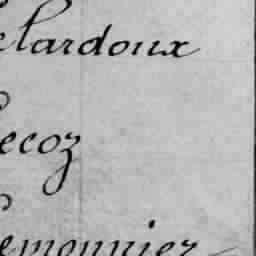 elardoux
Lecoz
Lemonnier